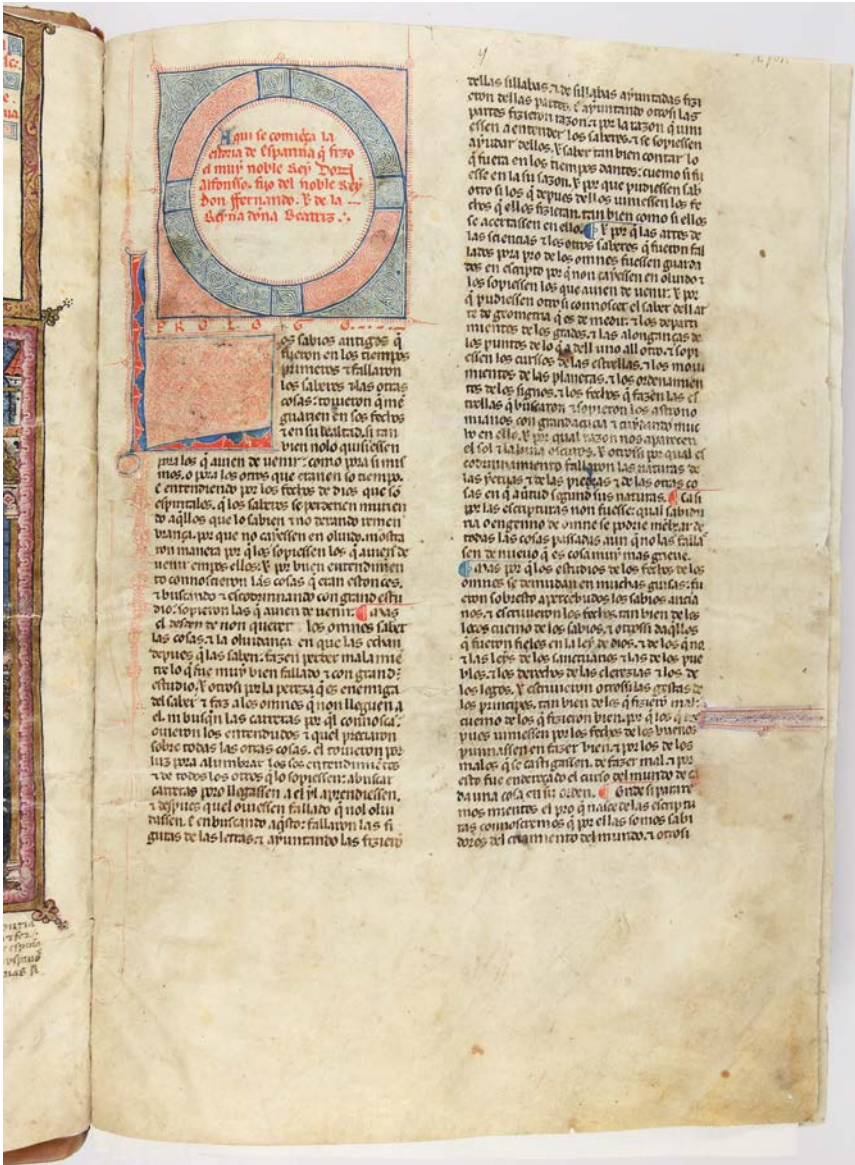 Aqui se comiẽça la
estoria de Espanna q̃ fizo
el muy noble Rey Don
Alfonsso. fijo del noble Rey
Don ffernando. ⁊ de la
Reyna doña Beatriz
PROLOGO
os sabios antigos q̃
fueron en los tiempos
primeros ⁊ fallaron
los saberes ⁊ las otras
cosas: touieron q̃ mẽ
guarien en sos fechos
⁊ en su lealtad. si tan
bien nolo quisiessen
pora los q̃ auien de uenir: como pora si mis
mos. o pora los otros que eran en so tiempo.
E entendiendo por los fechos de dios que sõ
espiritales. q̃ los saberes se perderien murien
do aq̃llos que lo sabien ⁊ no dexando remem
brança. por que no cayessen en oluido. mostra
ron manera por q̃ los sopiessen los q̃ auien de
uenir empos ellos. ⁊ por buen entendimien
to connoscieron las cosas q̃ eran estonces.
⁊ buscando ⁊ escodrinnando con grand estu
dio: sopieron las q̃ auien de uenir. Mas
el desden de non querer los omnes saber
las cosas. ⁊ la oluidança en que las echan
depues q̃ las saben: fazen perder mala miẽ
tre lo q̃ fue muy bien fallado ⁊ con grand
estudio. ⁊ otrosi por la pereza q̃ es enemiga
del saber ⁊ faz a los omnes q̃ non lleguen a
el. ni busq̃n las carreras por q̃l connoscã.
ouieron los entendudos ⁊ quel preciaron
sobre todas las otras cosas. el touieron por
luz pora alumbrar los sos entendimiẽtos
⁊ de todos los otros q̃ lo sopiessen: a buscar
carreras poro llegassen a el yl aprendiessen.
⁊ despues quel ouiessen fallado q̃ nol olui
dassen. E en buscando aq̃sto: fallaron las fi
guras de las letras. ⁊ ayuntando las fizierõ
dellas sillabas. ⁊ de sillabas ayuntadas fizi
eron dellas partes. E ayuntando otrosi las
partes fizieron razon. ⁊ por la razon q̃ uini
essen a entender los saberes. ⁊ se sopiessen
ayudar dellos. ⁊ saber tan bien contar lo
q̃ fuera en los tiempos dantes: cuemo si fu
esse en la su sazon. ⁊ por que pudiessen sab
otro si los q̃ depues dellos uiniessen los fe
chos q̃ ellos fizieran. tan bien como si ellos
se acertassen en ello. ⁊ por q̃ las artes de
las sciencias ⁊ los otros saberes q̃ fueron fal
lados pora pro de los omnes fuessen guarda
dos en escripto por q̃ non cayessen en oluido ⁊
los sopiessen los que auien de uenir. ⁊ por
q̃ pudiessen otrosi connoscer el saber dell ar
te de geometria q̃ es de medir. ⁊ los departi
mientos de los grados. ⁊ las alonganças de
los puntos de lo q̃ a dell uno all otro. ⁊ sopi
essen los cursos de las estrellas. ⁊ los moui
mientos de las planetas. ⁊ los ordenamien
tos de los signos. ⁊ los fechos q̃ fazen las es
trellas q̃ buscaron ⁊ sopieron los astrono
mianos con grand acucia ⁊ cuydando muc
ho en ello. ⁊ por qual razon nos aparecen
el sol ⁊ la luna oscuros. ⁊ otrossi por qual es
codrinnamiento fallaron las naturas de
las yeruas ⁊ de las piedras ⁊ de las otras co
sas en q̃ a uirtud segund sus naturas. Ca si
por las escripturas non fuesse: qual sabidu
ria o engenno de omne se podrie mẽbrar de
todas las cosas passadas aun q̃ no las falla
sen de nueuo q̃ es cosa muy mas grieue.
Mas por q̃ los estudios de los fechos de los
omnes se demudan en muchas guisas: fu
eron sobresto apercebudos los sabios ancia
nos. ⁊ escriuieron los fechos tan bien de los
locos cuemo de los sabios. ⁊ otrossi daq̃llos
q̃ fueron fieles en la ley de dios. ⁊ de los q̃ no
⁊ las leys de los sanctuarios ⁊ las de los pue
blos. ⁊ los derechos de las clerezias ⁊ los de
los legos. ⁊ escriuieron otrossi las gestas de
los principes. tan bien de los q̃ fizierõ mal:
cuemo de los q̃ fizieron bien. por q̃ los q̃ des
pues uiniessen por los fechos de los buenos
punnassen en fazer bien. ⁊ por los de los
malos q̃ se castigassen. de fazer mal. ⁊ por
esto fue endereçado el curso del mundo de ca
da una cosa en su orden. Onde si parare
mos mientes el pro q̃ nasce de las escriptu
ras connoscremos q̃ por ellas somos sabi
dores del criamiento del mundo. ⁊ otrosi